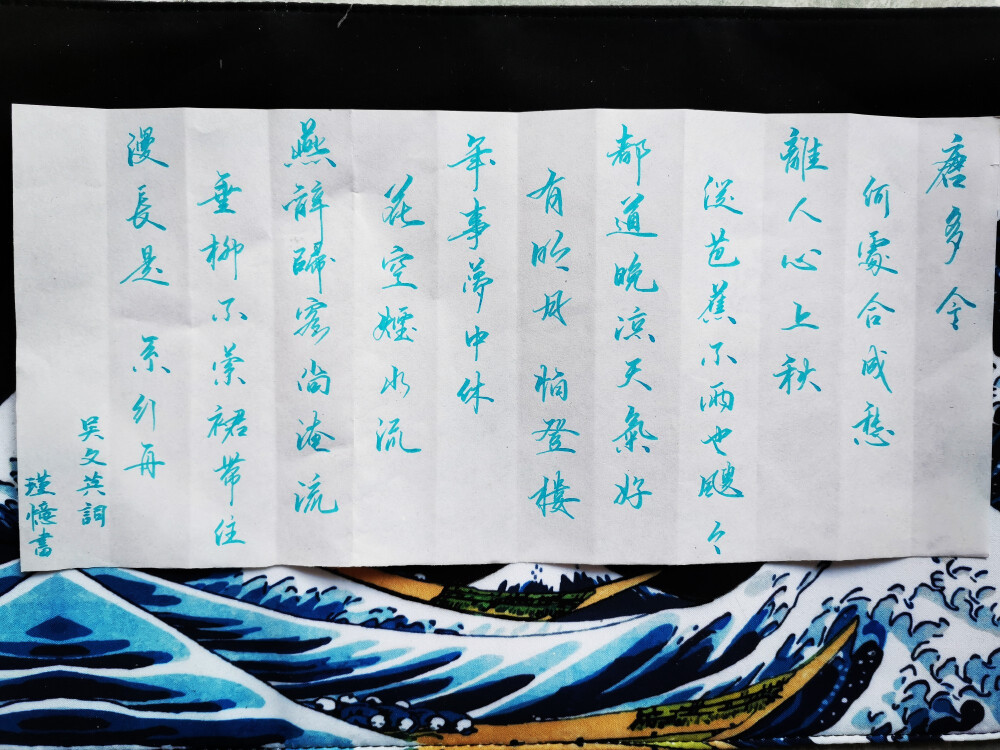 唐多令
何處合成愁
離人心上秋
縱芭蕉不雨也颼々
都道晚涼天氣好
有明月怕登樓
年事夢中休
花空煙水流
燕辭歸客尚淹流
垂柳不縈裙帶住
漫長是 系行舟
吳文英詞
瑾憶書